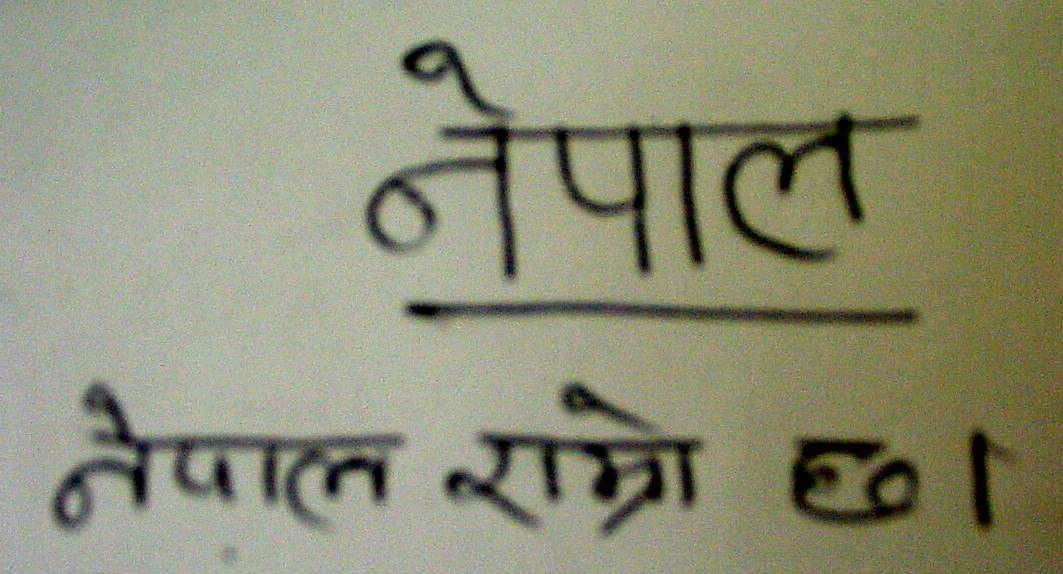 नेपाल
नेपाल राम्रो छ।